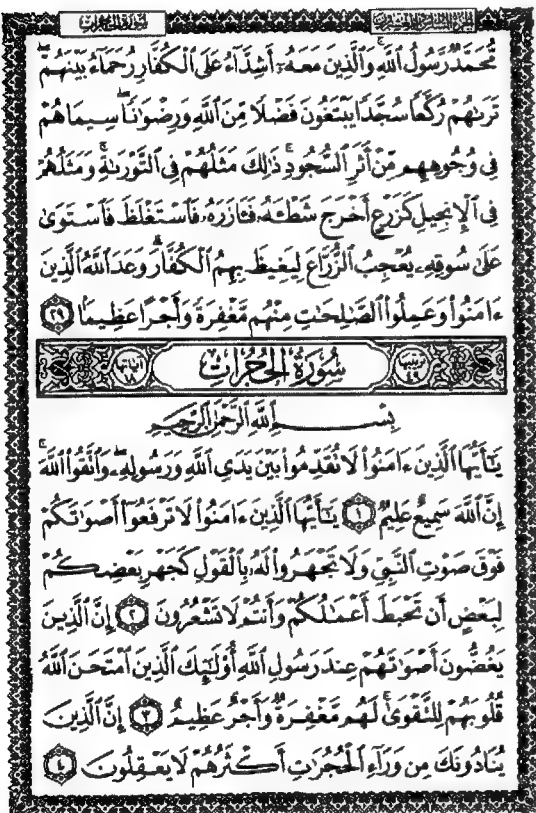 سُورَةُ الحُجُرَاتِ
مُّحَمَّدٌ رَّسُولُ ٱللَّهِ وَٱلَّذِينَ مَعَهُۥٓ أَشِدَّآءُ عَلَى ٱلْكُفَّارِ رُحَمَآءُ بَيْنَهُمْ ۖ
تَرَىٰهُمْ رُكَّعًا سُجَّدًا يَبْتَغُونَ فَضْلًا مِّنَ ٱللَّهِ وَرِضْوَٰنًا ۖ سِيمَاهُمْ
فِى وُجُوهِهِم مِّنْ أَثَرِ ٱلسُّجُودِ ۚ ذَٰلِكَ مَثَلُهُمْ فِى ٱلتَّوْرَىٰةِ ۚ وَمَثَلُهُمْ
فِى ٱلْإِنجِيلِ كَزَرْعٍ أَخْرَجَ شَطْـَٔهُۥ فَـَٔازَرَهُۥ فَٱسْتَغْلَظَ فَٱسْتَوَىٰ
عَلَىٰ سُوقِهِۦ يُعْجِبُ ٱلزُّرَّاعَ لِيَغِيظَ بِهِمُ ٱلْكُفَّارَ ۗ وَعَدَ ٱللَّهُ ٱلَّذِينَ
ءَامَنُوا۟ وَعَمِلُوا۟ ٱلصَّٰلِحَٰتِ مِنْهُم مَّغْفِرَةً وَأَجْرًا عَظِيمًۢا ٢٩
ترتيبها ٤٩ سُورَةُ الحُجُرَاتِ آياتها ١٨
بِسْمِ ٱللَّهِ ٱلرَّحْمَٰنِ ٱلرَّحِيمِ
يَٰٓأَيُّهَا ٱلَّذِينَ ءَامَنُوا۟ لَا تُقَدِّمُوا۟ بَيْنَ يَدَىِ ٱللَّهِ وَرَسُولِهِۦ ۖ وَٱتَّقُوا۟ ٱللَّهَ ۚ
إِنَّ ٱللَّهَ سَمِيعٌ عَلِيمٌ ١ يَٰٓأَيُّهَا ٱلَّذِينَ ءَامَنُوا۟ لَا تَرْفَعُوٓا۟ أَصْوَٰتَكُمْ
فَوْقَ صَوْتِ ٱلنَّبِىِّ وَلَا تَجْهَرُوا۟ لَهُۥ بِٱلْقَوْلِ كَجَهْرِ بَعْضِكُمْ
لِبَعْضٍ أَن تَحْبَطَ أَعْمَٰلُكُمْ وَأَنتُمْ لَا تَشْعُرُونَ ٢ إِنَّ ٱلَّذِينَ
يَغُضُّونَ أَصْوَٰتَهُمْ عِندَ رَسُولِ ٱللَّهِ أُو۟لَٰٓئِكَ ٱلَّذِينَ ٱمْتَحَنَ ٱللَّهُ
قُلُوبَهُمْ لِلتَّقْوَىٰ ۚ لَهُم مَّغْفِرَةٌ وَأَجْرٌ عَظِيمٌ ٣ إِنَّ ٱلَّذِينَ
يُنَادُونَكَ مِن وَرَآءِ ٱلْحُجُرَٰتِ أَكْثَرُهُمْ لَا يَعْقِلُونَ ٤